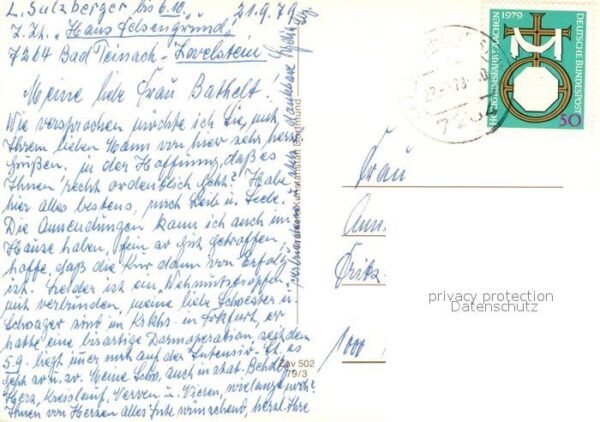 L. Sulzberger bis 6.10. 21.9.79
z.Zt. „Haus Felsengrund"
7264 Bad Teinach-Zavelstein
Meine liebe Frau Barthelt!
Wie versprochen möchte ich Sie, mit
Ihrem lieben Mann von hier sehr herzl.
grüßen. in der Hoffnung, daß es
Ihnen recht ordentlich geht? Habe
hier alles bestens, nach Leib u. Seele.
Die Anwendungen kann ich auch im
Hause haben, fein es gut getroffen
hoffe, daß die Kur dann von Erfolg
ist. Leider ist ein Wehmutstropfen
mit verbunden, meine liebe Schwester u.
Schwager sind im Krkhs. in Erkfurt, er
hatte eine bösartige Darmoperation, seit dem
5.9. liegt immer noch auf der Intensiv-St. es
geht auf u. ab. Meine Schw. auch in stat. Behdlg.
Herz, Kreislauf, Nerven u. Nieren, wie lange noch?
Ihnen von Herzen alles Gute wünschend, herzl. Ihre
dankbare Lydia Sulzbg.
Kunstanstalt Dortmund
Zav 502
79/3
1979
HEILIGTUMSFAHRT AACHEN
DEUTSCHE BUNDESPOST
50
7263
Frau
Ann
Fritz
1000
privacy protection
Datenschutz